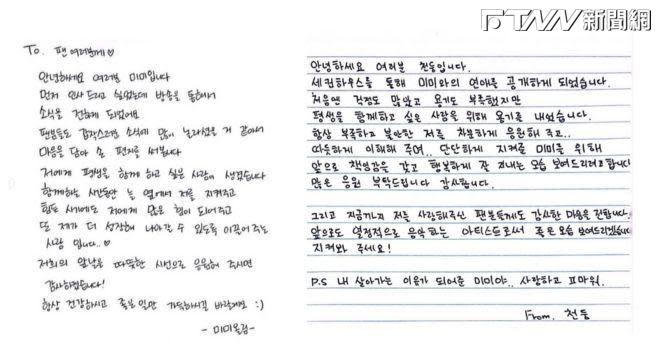 FTNN 新聞網
To. 팬 여러분께♡
안녕하세요 여러분 미미입니다
먼저 인사드리고 싶었는데 방송을 통해서
소식을 전하게 되었어요
팬분들도 갑작스러운 소식에 많이 놀라셨을 거 같아서
마음을 담아 손 편지를 써봅니다
저에게 평생을 함께 하고 싶은 사람이 생겼습니다
함께하는 시간동안 늘 옆에서 저를 지켜주고
힘든 새에도 저에게 많은 힘이 되어주고
또 제가 더 성장해 나아갈 수 있도록 이끌어주는
사람 입니다..♡
저희의 앞날을 따뜻한 시선으로 응원해 주시면
감사하겠습니다!
항상 건강하시고 좋은 일만 가득하시길 바랄게요 :)
- 미미올림 -
안녕하세요 여러분 천둥입니다.
세컨하우스를 통해 미미와의 연애를 공개하게 되었습니다.
처음엔 걱정도 많았고 용기도 부족했지만
평생을 함께하고 싶은 사람을 위해 용기를 내었습니다.
항상 부족하고 불안한 저를 차분하게 응원해 주고..
따듯하게 이해해 주며.. 단단하게 지켜준 미미를 위해
앞으로 책임감을 갖고 행복하게 잘 지내는 모습 보여드리려고합니다
많은 응원 부탁드립니다 감사합니다.
그리고 지금까지 저를 사랑해주신 팬분들께도 감사한 마음을 전합니다.
앞으로도 열정적으로 음악하는 아티스트로서 좋은 모습 보여드리겠습니다
지켜봐 주세요!
P.S 내 살아가는 이유가 되어준 미미야.. 사랑하고 고마워.
From. 천둥